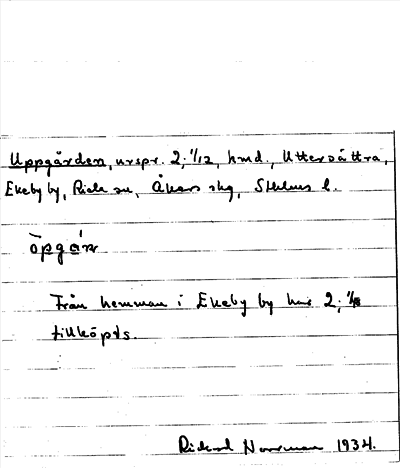 Uppgården, urspr. 2. 1/12, hmd., Uttersåttra,
Ekeby by, Riala sn, Åkers skg, Sthlms l.
öpgɑ́ṇ
Från hemman i Ekeby by har 2. 1/18
tillköpts.
Rickard Norrman 1934.